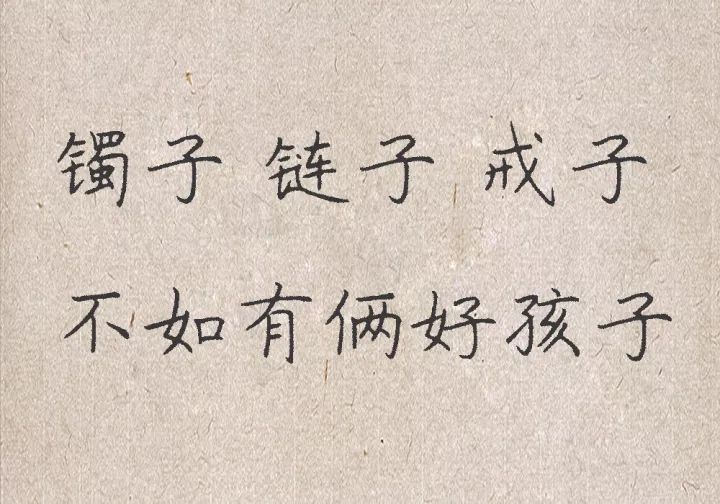 镯子 链子 戒子
不如有俩好孩子